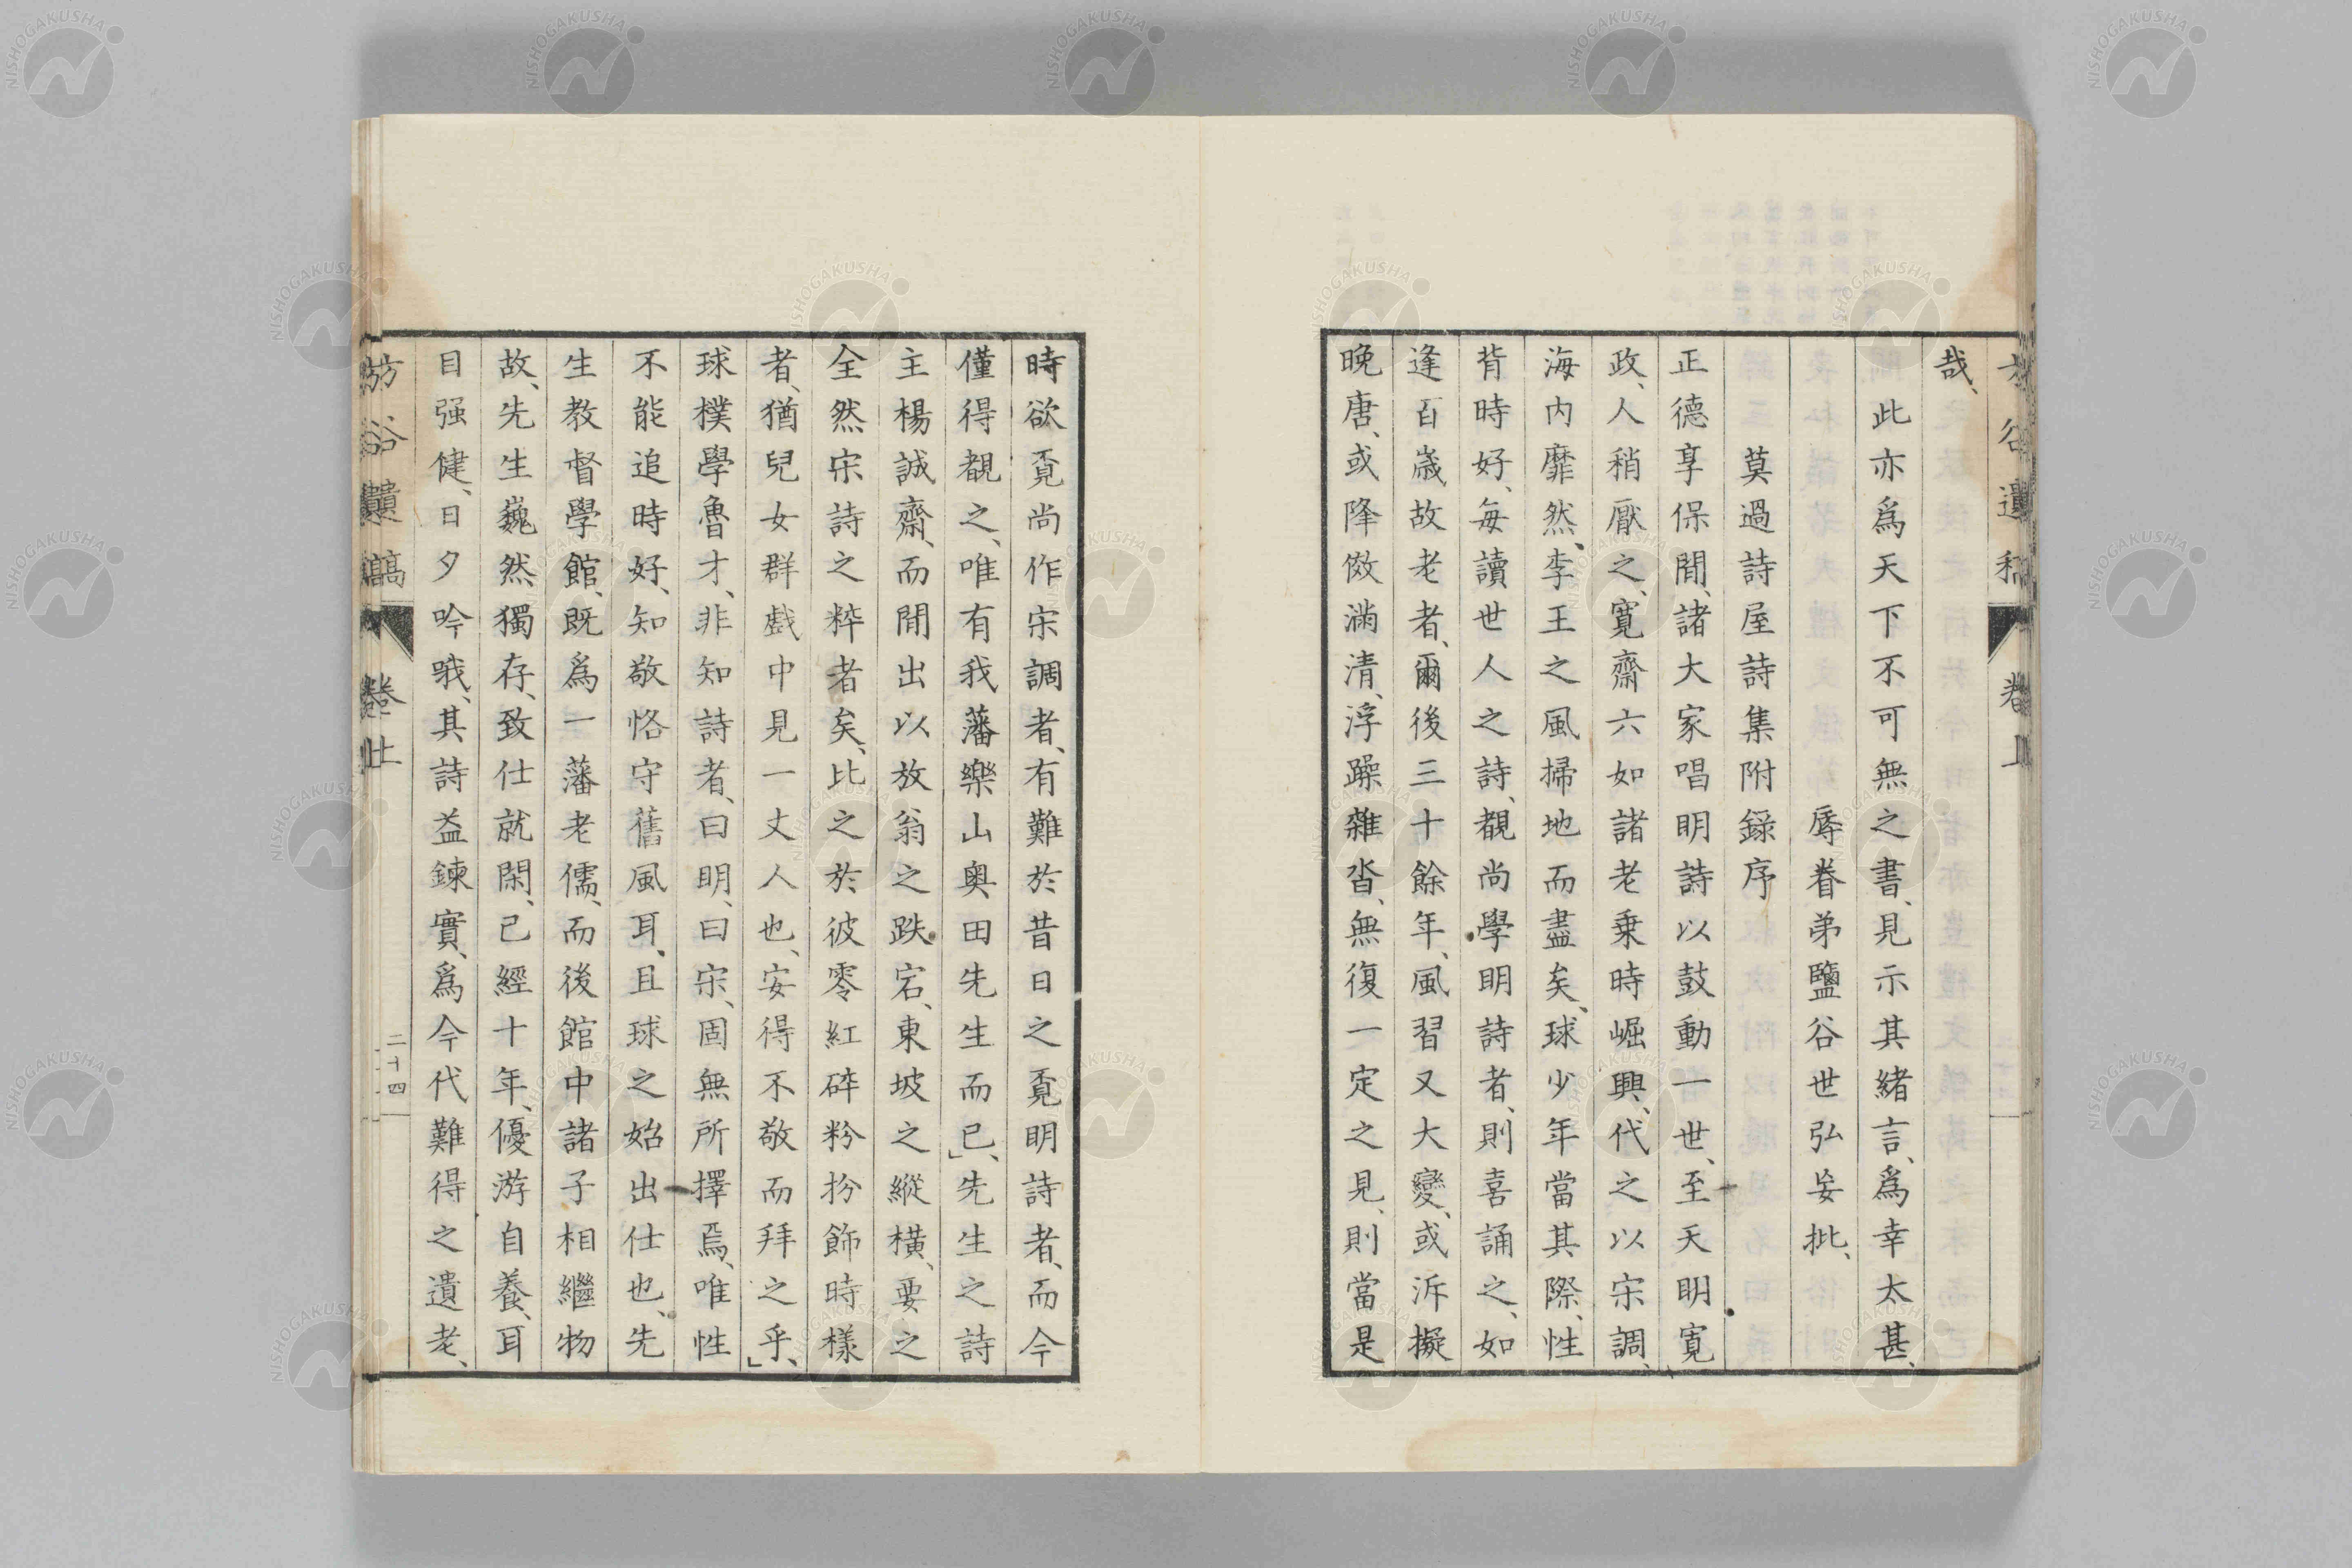 哉、
此亦爲天下不可無之書、見示其緒言、爲幸太甚、
辱眷弟鹽谷世弘妄批、
莫過詩屋詩集附錄序
正德享保間、諸大家唱明詩以鼓動一世、至天明寬
政、人稍厭之、寬齋六如諸老乗時崛興、代之以宋調、
海内靡然、李王之風掃地而盡矣、球少年當其際、性
背時好、每讀世人之詩、覩尚學明詩者、則喜誦之、如
逢百歲故老者、爾後三十餘年、風習又大變、或泝擬
晚唐、或降傚滿清、浮躁雜沓、無復一定之見、則當是
時欲覔尚作宋調者、有難於昔日之覔明詩者、而今
僅得覩之、唯有我藩樂山奥田先生而已、」先生之詩
主楊誠齋、而間出以放翁之跌宕、東坡之縱橫、要之
全然宋詩之粹者矣、比之於彼零紅碎粉扮飾時樣
者、猶兒女群戲中見一丈人也、安得不敬而拜之乎、」
球樸學魯才、非知詩者、曰明、曰宋、固無所擇焉、唯性
不能追時好、知敬恪守舊風耳、且球之始出仕也、先
生教督學館、既爲一藩老儒、而後館中諸子相繼物
故、先生巍然獨存、致仕就閑、已經十年、優游自養、耳
目强健、日夕吟哦、其詩益鍊實、爲今代難得之遺老、
谷遺稿
卷上
二十四